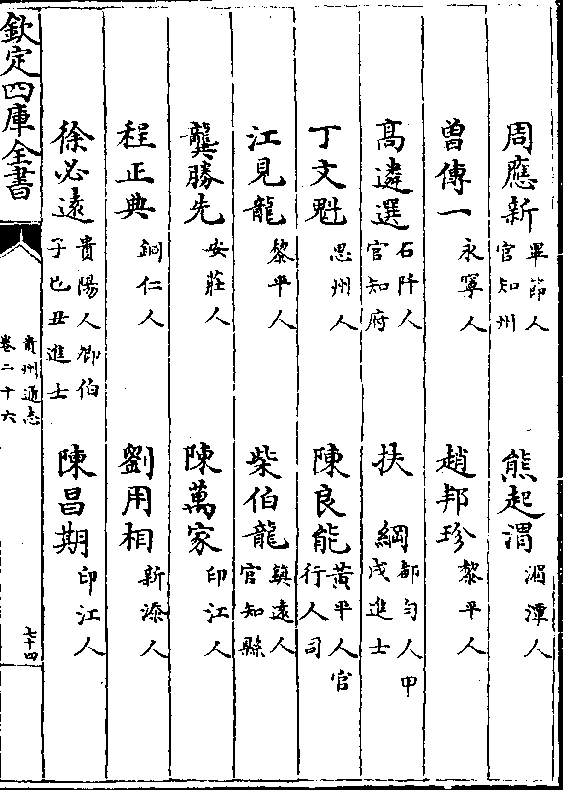 周應新 畢節人官知州 熊起渭 湄潭人
曾傳一 永寧人 趙邦珍 黎平人
髙遴選 石阡人官知府 扶綱 都勻人甲戌進士
丁文魁 思州人 陳良能 黃平人官行人司
江見龍 黎平人 柴伯龍 鎮遠人官知縣
龔勝先 安莊人 陳萬家 印江人
程正典 銅仁人 劉用相 新添人
徐必遠 貴陽人卿伯子已丑進士 陳昌期 印江人
欽定四庫全書
貴州通志
卷二十六
七十四